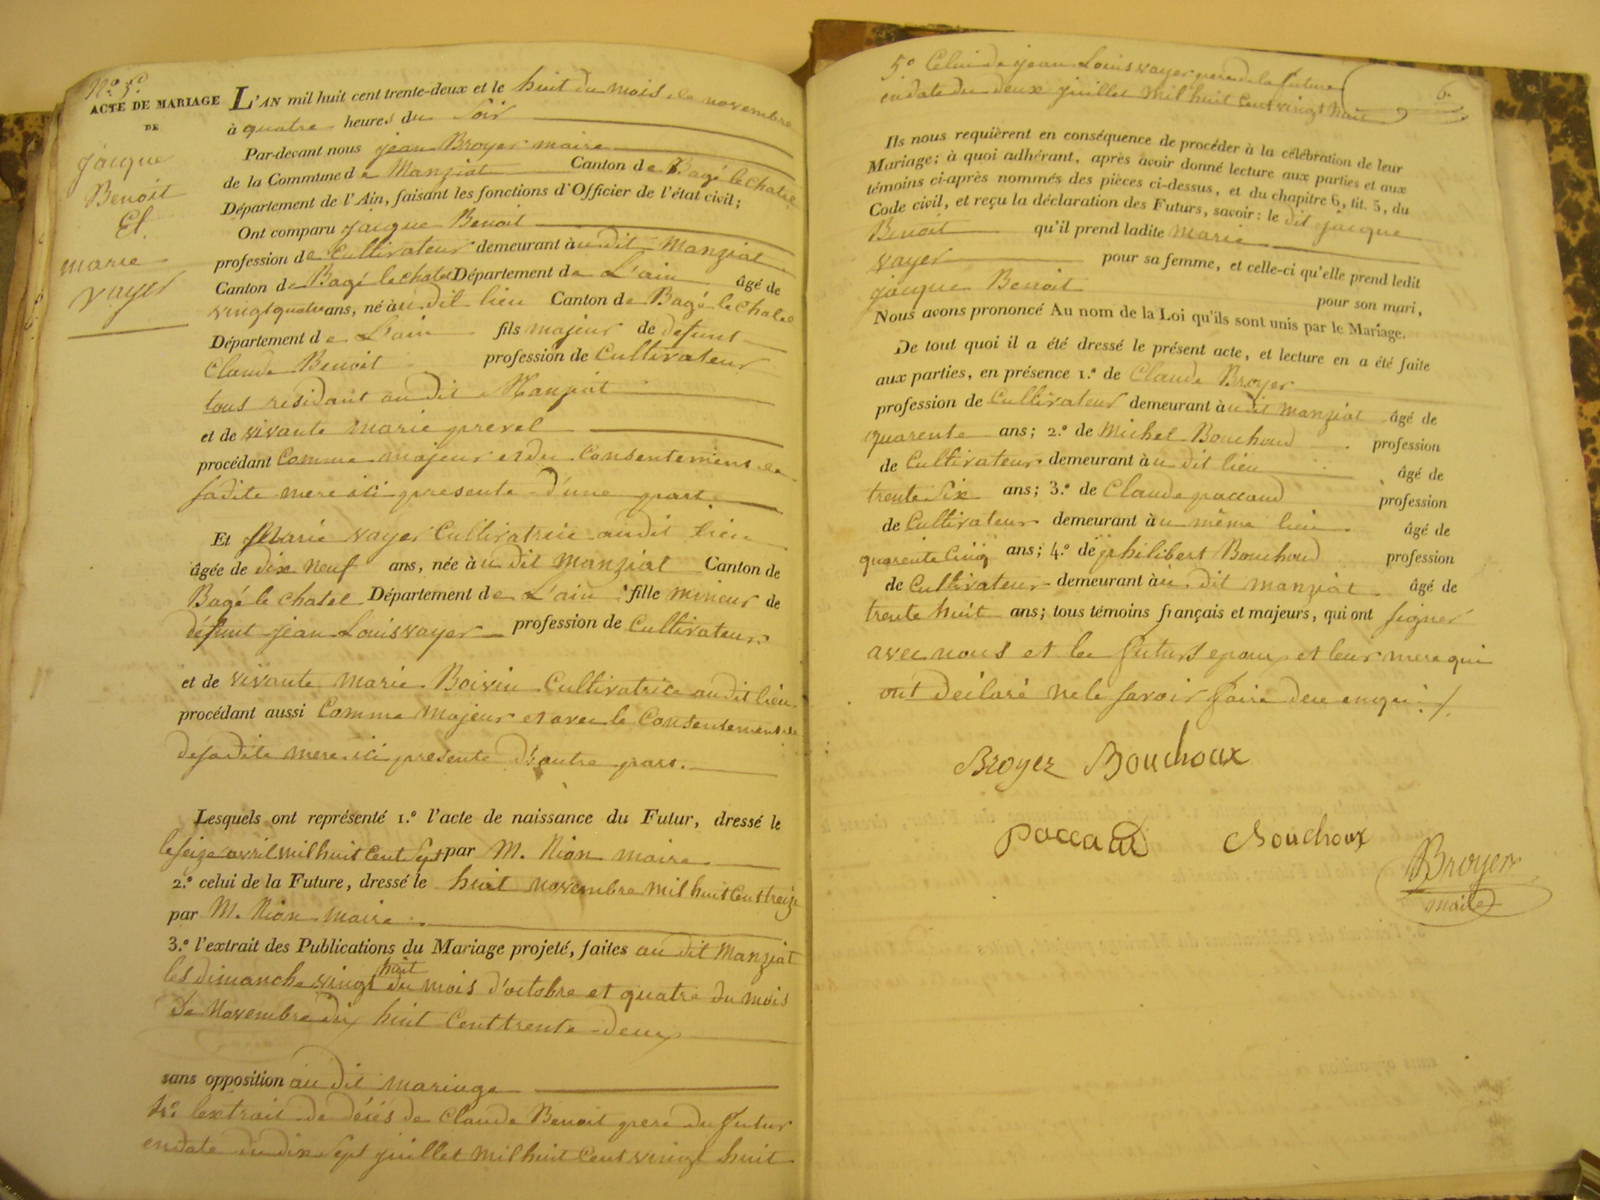 No. 5e.
ACTE DE MARIAGE
DE
jacque
Benoit
Et
marie
vayer
L'AN mil huit cent trente-deux et le huit du mois de novembre
à quatre heures du Soir
Par-devant nous jean Broyer maire
de la Commune de Manziat Canton de Bagé le chatel
Département de l'Ain, faisant les fonctions d'Officier de l'état civil;
Ont comparu jacque Benoit
profession de Cultivateur demeurant audit Manziat
Canton de Bagé le chatel Département de L'ain âgé de
vingt quatre ans, né au dit lieu Canton de Bagé le chatel
Département de L'ain fils majeur de defunt
Claude Benoit profession de Cultivateur
tous residant au dit Manziat
et de vivante marie prevel
procédant Comme majeur et du Consentement de
sadite mere ici presente d'une part
Et Marie vayer Cultivatrice audit lieu
âgée de dix neuf ans, née au dit Manziat Canton de
Bagé le chatel Département de L'ain fille mineur de
défunt jean Louis vayer profession de Cultivateur
et de vivante marie Boivin Cultivatrice audit lieu
procédant aussi Comme Majeur et avec le Consentement de
desadite mere ici presente d'autre part.
Lesquels ont représenté 1.º l'acte de naissance du Futur, dressé le
le seize avril mil huit Cent Sept par M. Nion maire
2.º celui de la Future, dressé le huit novembre mil huit Cent treize
par M. Nion maire
3.º l'extrait des Publications du Mariage projeté, faites au dit Manziat
les dimanche vingt huit du mois d'octobre et quatre du mois
de Novembre dix huit Cent trente deux
sans opposition au dit mariage
4º. lextrait de décés de Claude Benoit pere du futur
endate du dix Sept juillet mil huit Cent vingt huit
5º Celui de jean Louis vayer pere de la future
en date du deux juillet mil huit Cent vingt huit
6.
Ils nous requièrent en conséquence de procéder à la célébration de leur
Mariage; à quoi adhérant, après avoir donné lecture aux parties et aux
témoins ci-après nommés des pièces ci-dessus, et du chapitre 6, tit. 5, du
Code civil, et reçu la déclaration des Futurs, savoir: le dit jacque
Benoit qu'il prend ladite marie
vayer pour sa femme, et celle-ci qu'elle prend ledit
jacque Benoit pour son mari,
Nous avons prononcé Au nom de la Loi qu'ils sont unis par le Mariage.
De tout quoi il a été dressé le présent acte, et lecture en a été faite
aux parties, en présence 1.º de Claude Broyer
profession de Cultivateur demeurant audit manziat âgé de
quarente ans; 2.º de Michel Bouchoud profession
de Cultivateur demeurant au dit lieu âgé de
trente Six ans; 3.º de Claude paccaud profession
de Cultivateur demeurant au même lieu âgé de
quarente Cinq ans; 4.º de philibert Bouchoud profession
de Cultivateur demeurant au dit manziat âgé de
trente huit ans; tous témoins français et majeurs, qui ont signer
avec nous et les futurs epoux et leur mere qui
ont déclaré ne le savoir faire de ce enqui./.
Broyer Bouchoux
paccaud Bouchoux
Broyer
maire